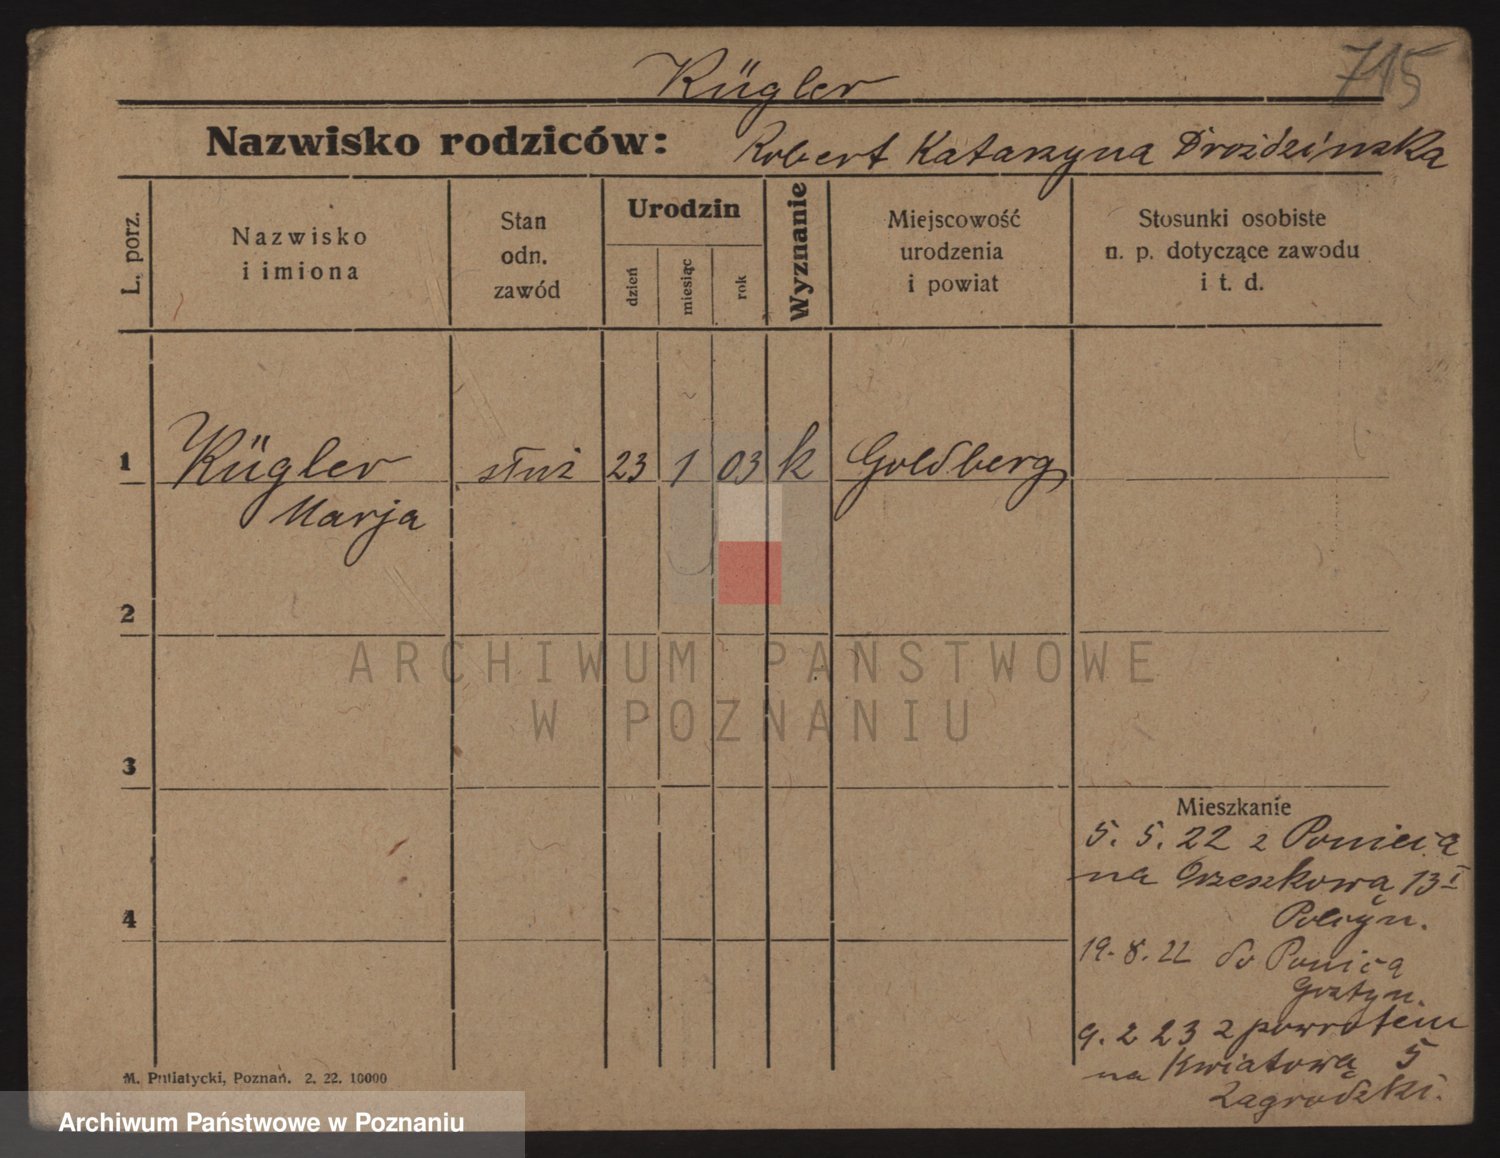 Kügler
715
Nazwisko rodziców: Robert Katarzyna Droździnska
L. porz.
Nazwisko
i imiona
Stan
odn.
zawód
Urodzin
dzień
miesiąc
rok
Wyznanie
Miejscowość
urodzenia
i powiat
Stosunki osobiste
n. p. dotyczące zawodu
i t. d.
1 Kügler służ 23 1 03 k Goldberg
Marja
2
ARCHIWUM PAŃSTWOWE
W POZNANIU
3
Mieszkanie
5. 5. 22 z Poniecą
na Orzeszkową 13 I
4
19. 8. 22 do
Gostyn.
9. 2 23 z powrotem
na Kwiatową 5
Zagrodzki.
M. Putiatycki, Poznań. 2. 22. 10000
Archiwum Państwowe w Poznaniu